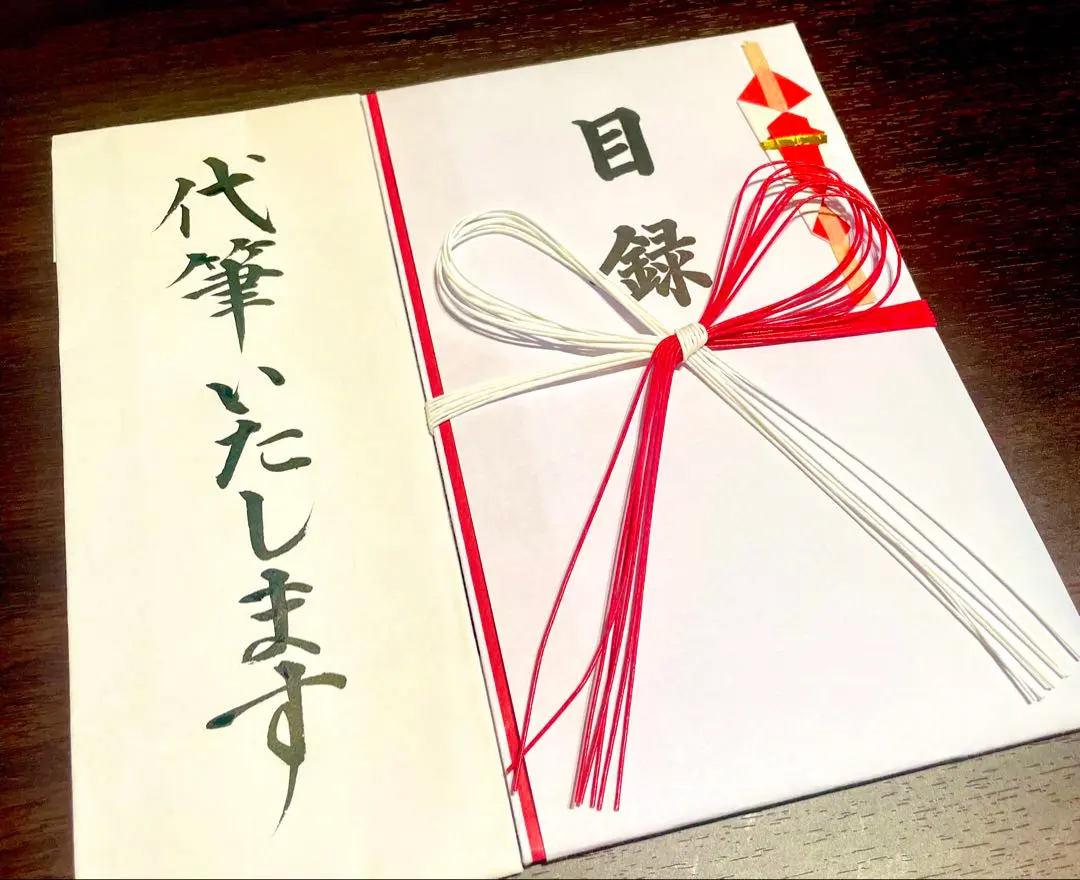 目録
代筆いたします